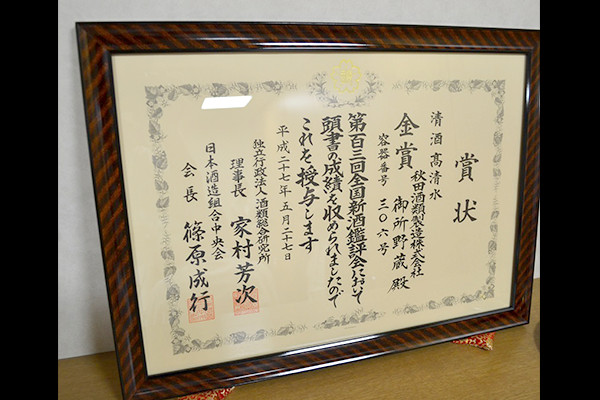 賞状
清酒 高清水
秋田酒類製造株式会社
御所野蔵 殿
金賞
容器番号 三〇六号
第百三回全国新酒鑑評会において
頭書の成績を収められましたので
これを授与します
平成二十七年五月二十七日
独立行政法人 酒類総合研究所
理事長 家村芳次
日本酒造組合中央会
会長 篠原成行